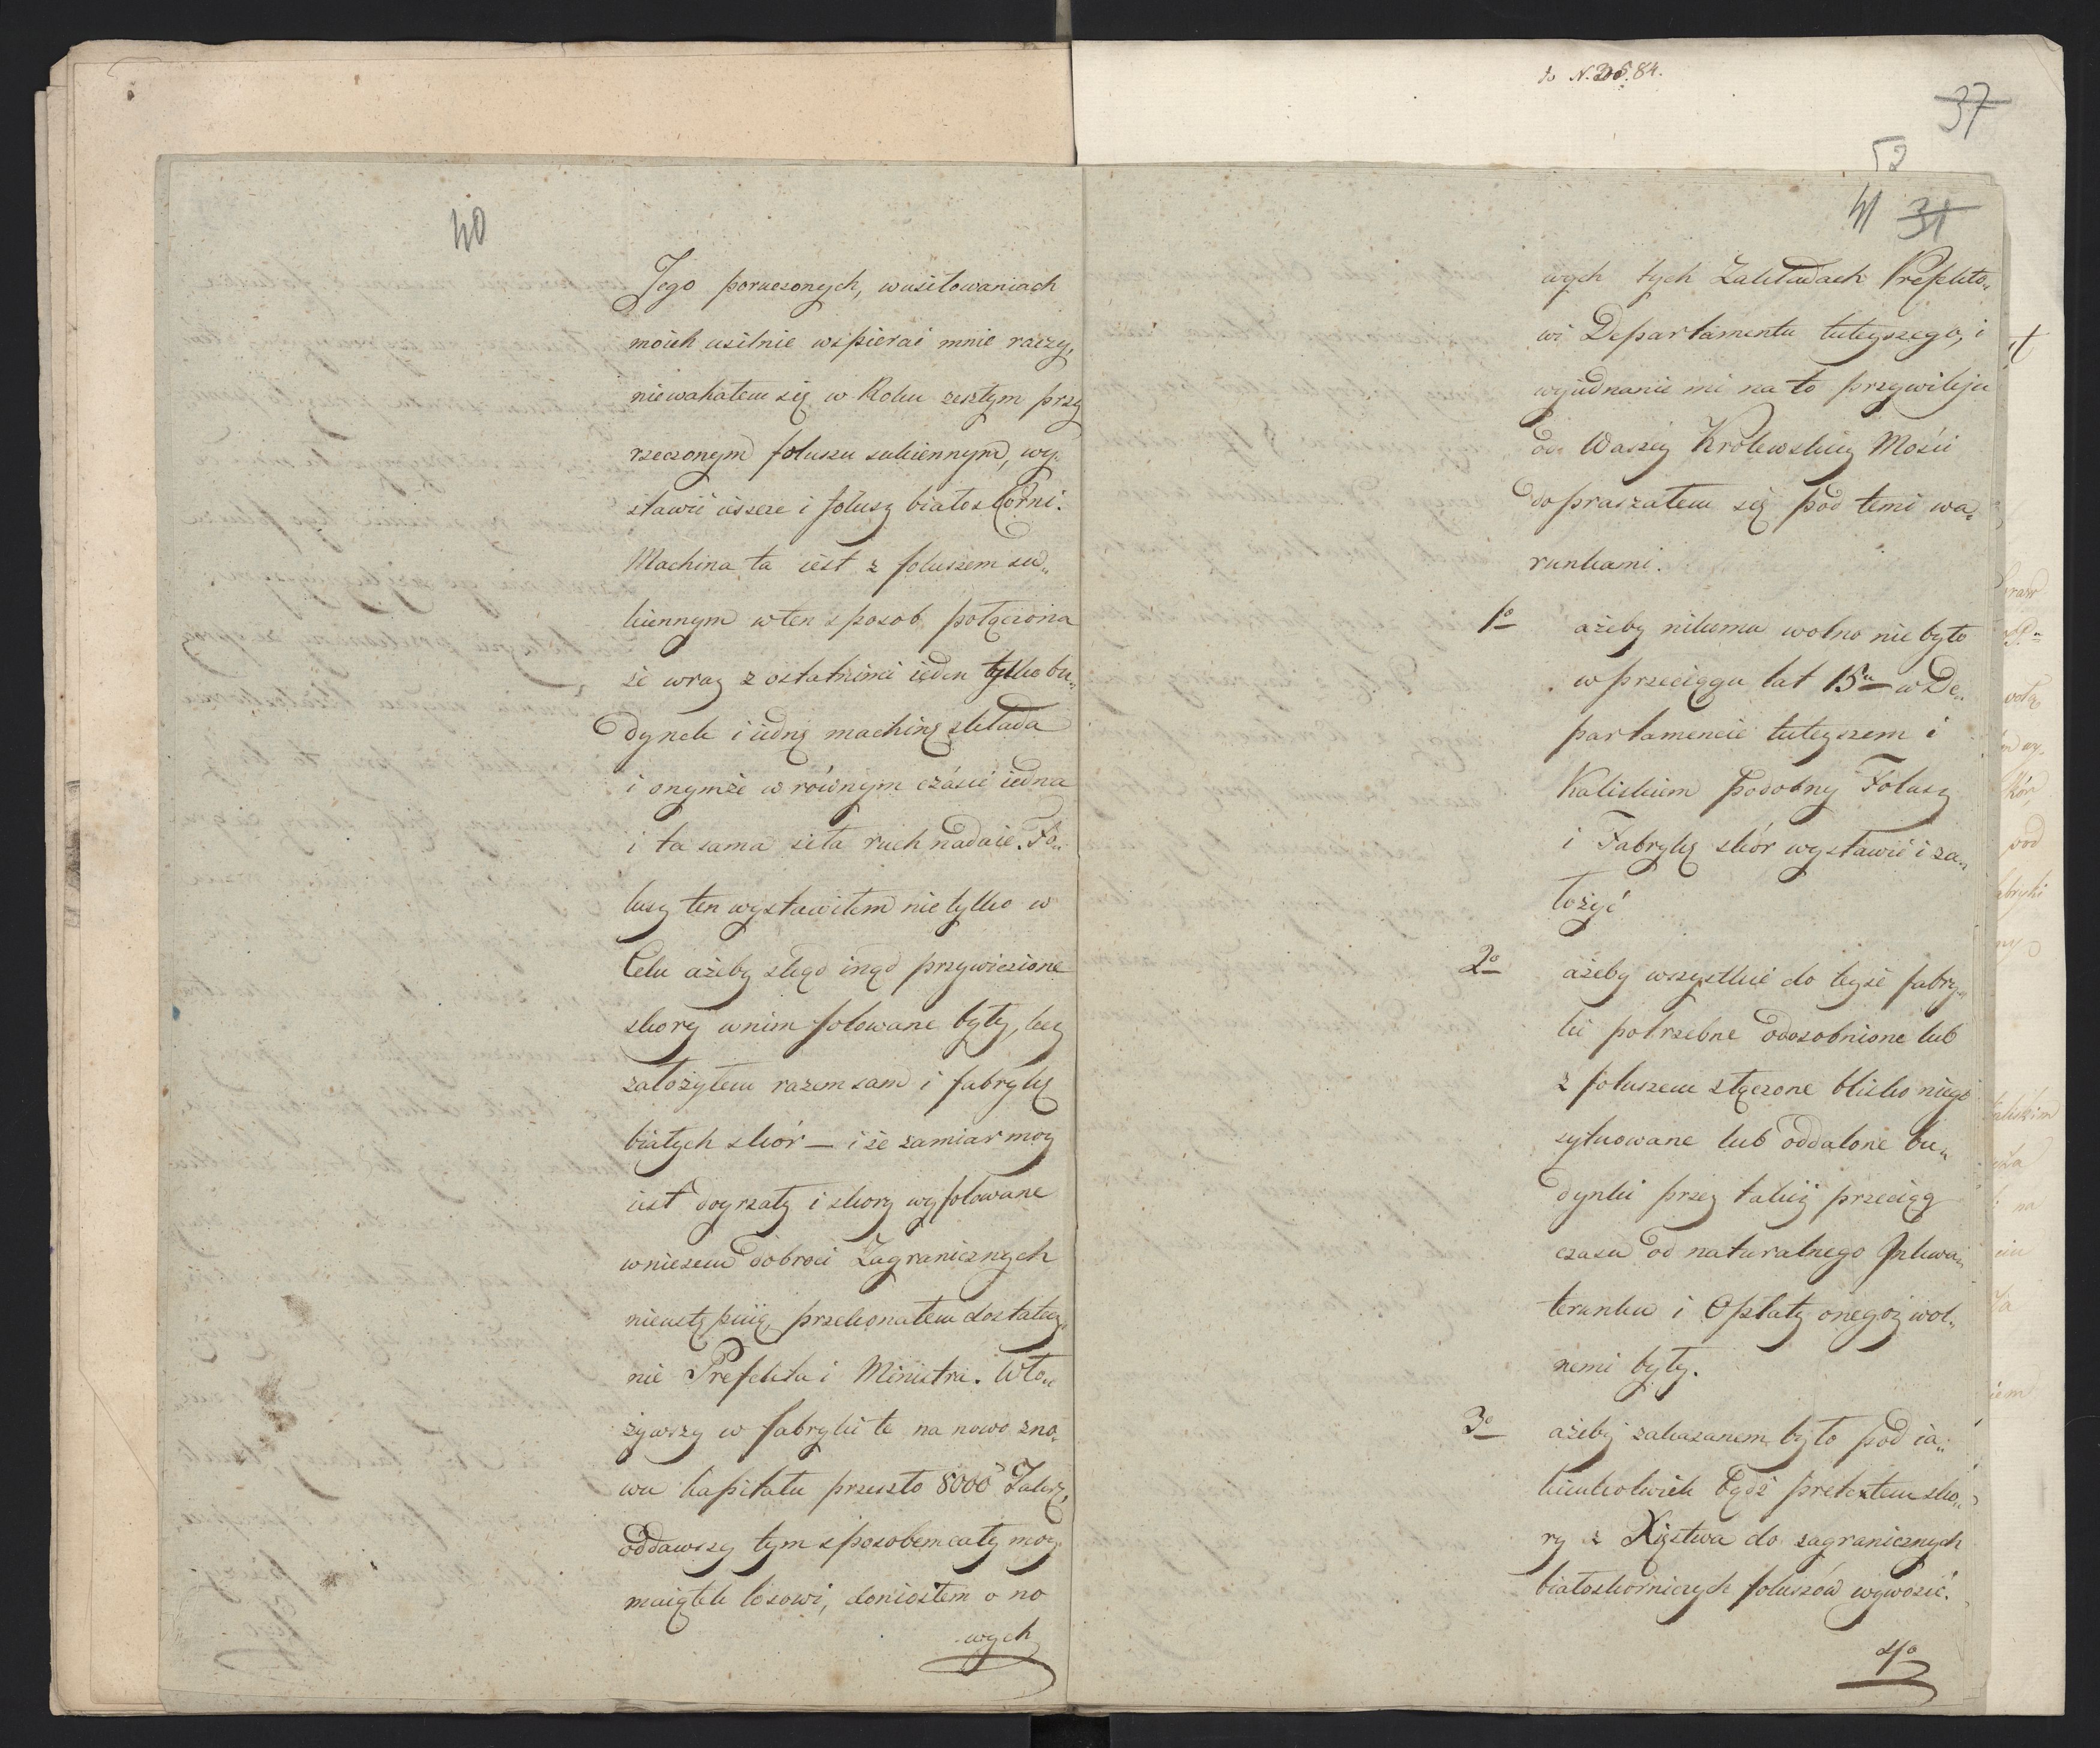 40
Jego poruczonych, w usiłowaniach
moich usilnie wspierać mnie raczy,
niewahałem się w Roku zeszłym przy
rzeczonym foluszu sukiennym, wy„
stawić ieszcze i folusz białoskórni.
Machina ta iest z foluszem su„
kiennym w ten sposob połączona
że wraz z ostatnimi ieden tylko bu„
dynek i iednę machinę składa
i onymże w równym czásie iedna
i ta sama siła ruch nadaie. Fo„
lusz ten wystawiłem nie tylko w
Celu ażeby zkąd inąd przywiezione
skory w nim folowane były, lecz
założyłem razem sam i fabrykę
białych skór — i że zamiar moy
iest doyrzały i skory wyfolowane
w niczem dobroci Zagranicznych
nieustępuią, przekonałem dostatecz„
nie Prefekta i Ministra. Wło„
żywszy w fabryki te na nowo zno„
wu kapitału przeszło 8000 Talarz,
oddawszy tym sposobem cały moy
maiątek losowi, doniosłem o no
wych
do N. 84.
37
52
41 31
wych tych Zakładach Prefekto„
wi Departamentu tuteyszego, i
wyiednanie mi na to przywileju
od Waszey Królewskiey Mości
dopraszałem się pod temi wa„
runkami.
1o ażeby nikomu wolno nie było
w przeciągu lat 15u w De„
partamencie tuteyszem i
Kaliskiem podobny Folusz
i Fabrykę skór wystawić i za„
łożyć
2o ażeby wszystkie do teyże fabry„
ki potrzebne odosobnione lub
z foluszem złączone blisko niego
sytuowane lub oddalone bu„
dynki przez takiż przeciąg
czasu od naturalnego Inkwa„
terunku i Opłaty onegoż wol„
nemi były.
3o ażeby zakazanem było pod ia„
kimkolwiek bądź pretextem sko„
ry z Xięstwa do zagranicznych
białoskórniczych foluszów wywozić.
4o